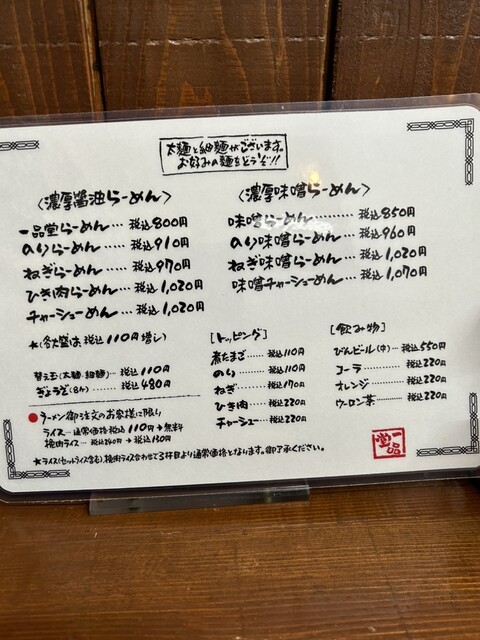 太麺と細麺がございます。
お好みの麺をどうぞ!!
〈濃厚醤油らーめん〉
一品堂らーめん… 税込800円
のりらーめん…… 税込910円
ねぎらーめん…… 税込970円
ひき肉らーめん… 税込1,020円
チャーシューめん… 税込1,020円
*(各大盛は 税込110円増し)
替え玉(太麺・細麺)… 税込110円
ぎょうざ(5ケ)……… 税込480円
〈濃厚味噌らーめん〉
味噌らーめん……… 税込850円
のり味噌らーめん… 税込960円
ねぎ味噌らーめん… 税込1,020円
味噌チャーシューめん… 税込1,070円
[トッピング]
煮たまご…… 税込110円
のり………… 税込110円
ねぎ………… 税込170円
ひき肉……… 税込220円
チャーシュー… 税込220円
[飲み物]
びんビール(中)… 税込550円
コーラ………… 税込220円
オレンジ……… 税込220円
ウーロン茶…… 税込220円
●ラーメン御注文のお客様に限り
ライス… 通常価格税込110円→無料
挽肉ライス… 税込240円→税込130円
*ライス(セットライス含む)、挽肉ライス合わせて3杯目より通常価格となります。御了承ください。
一品堂